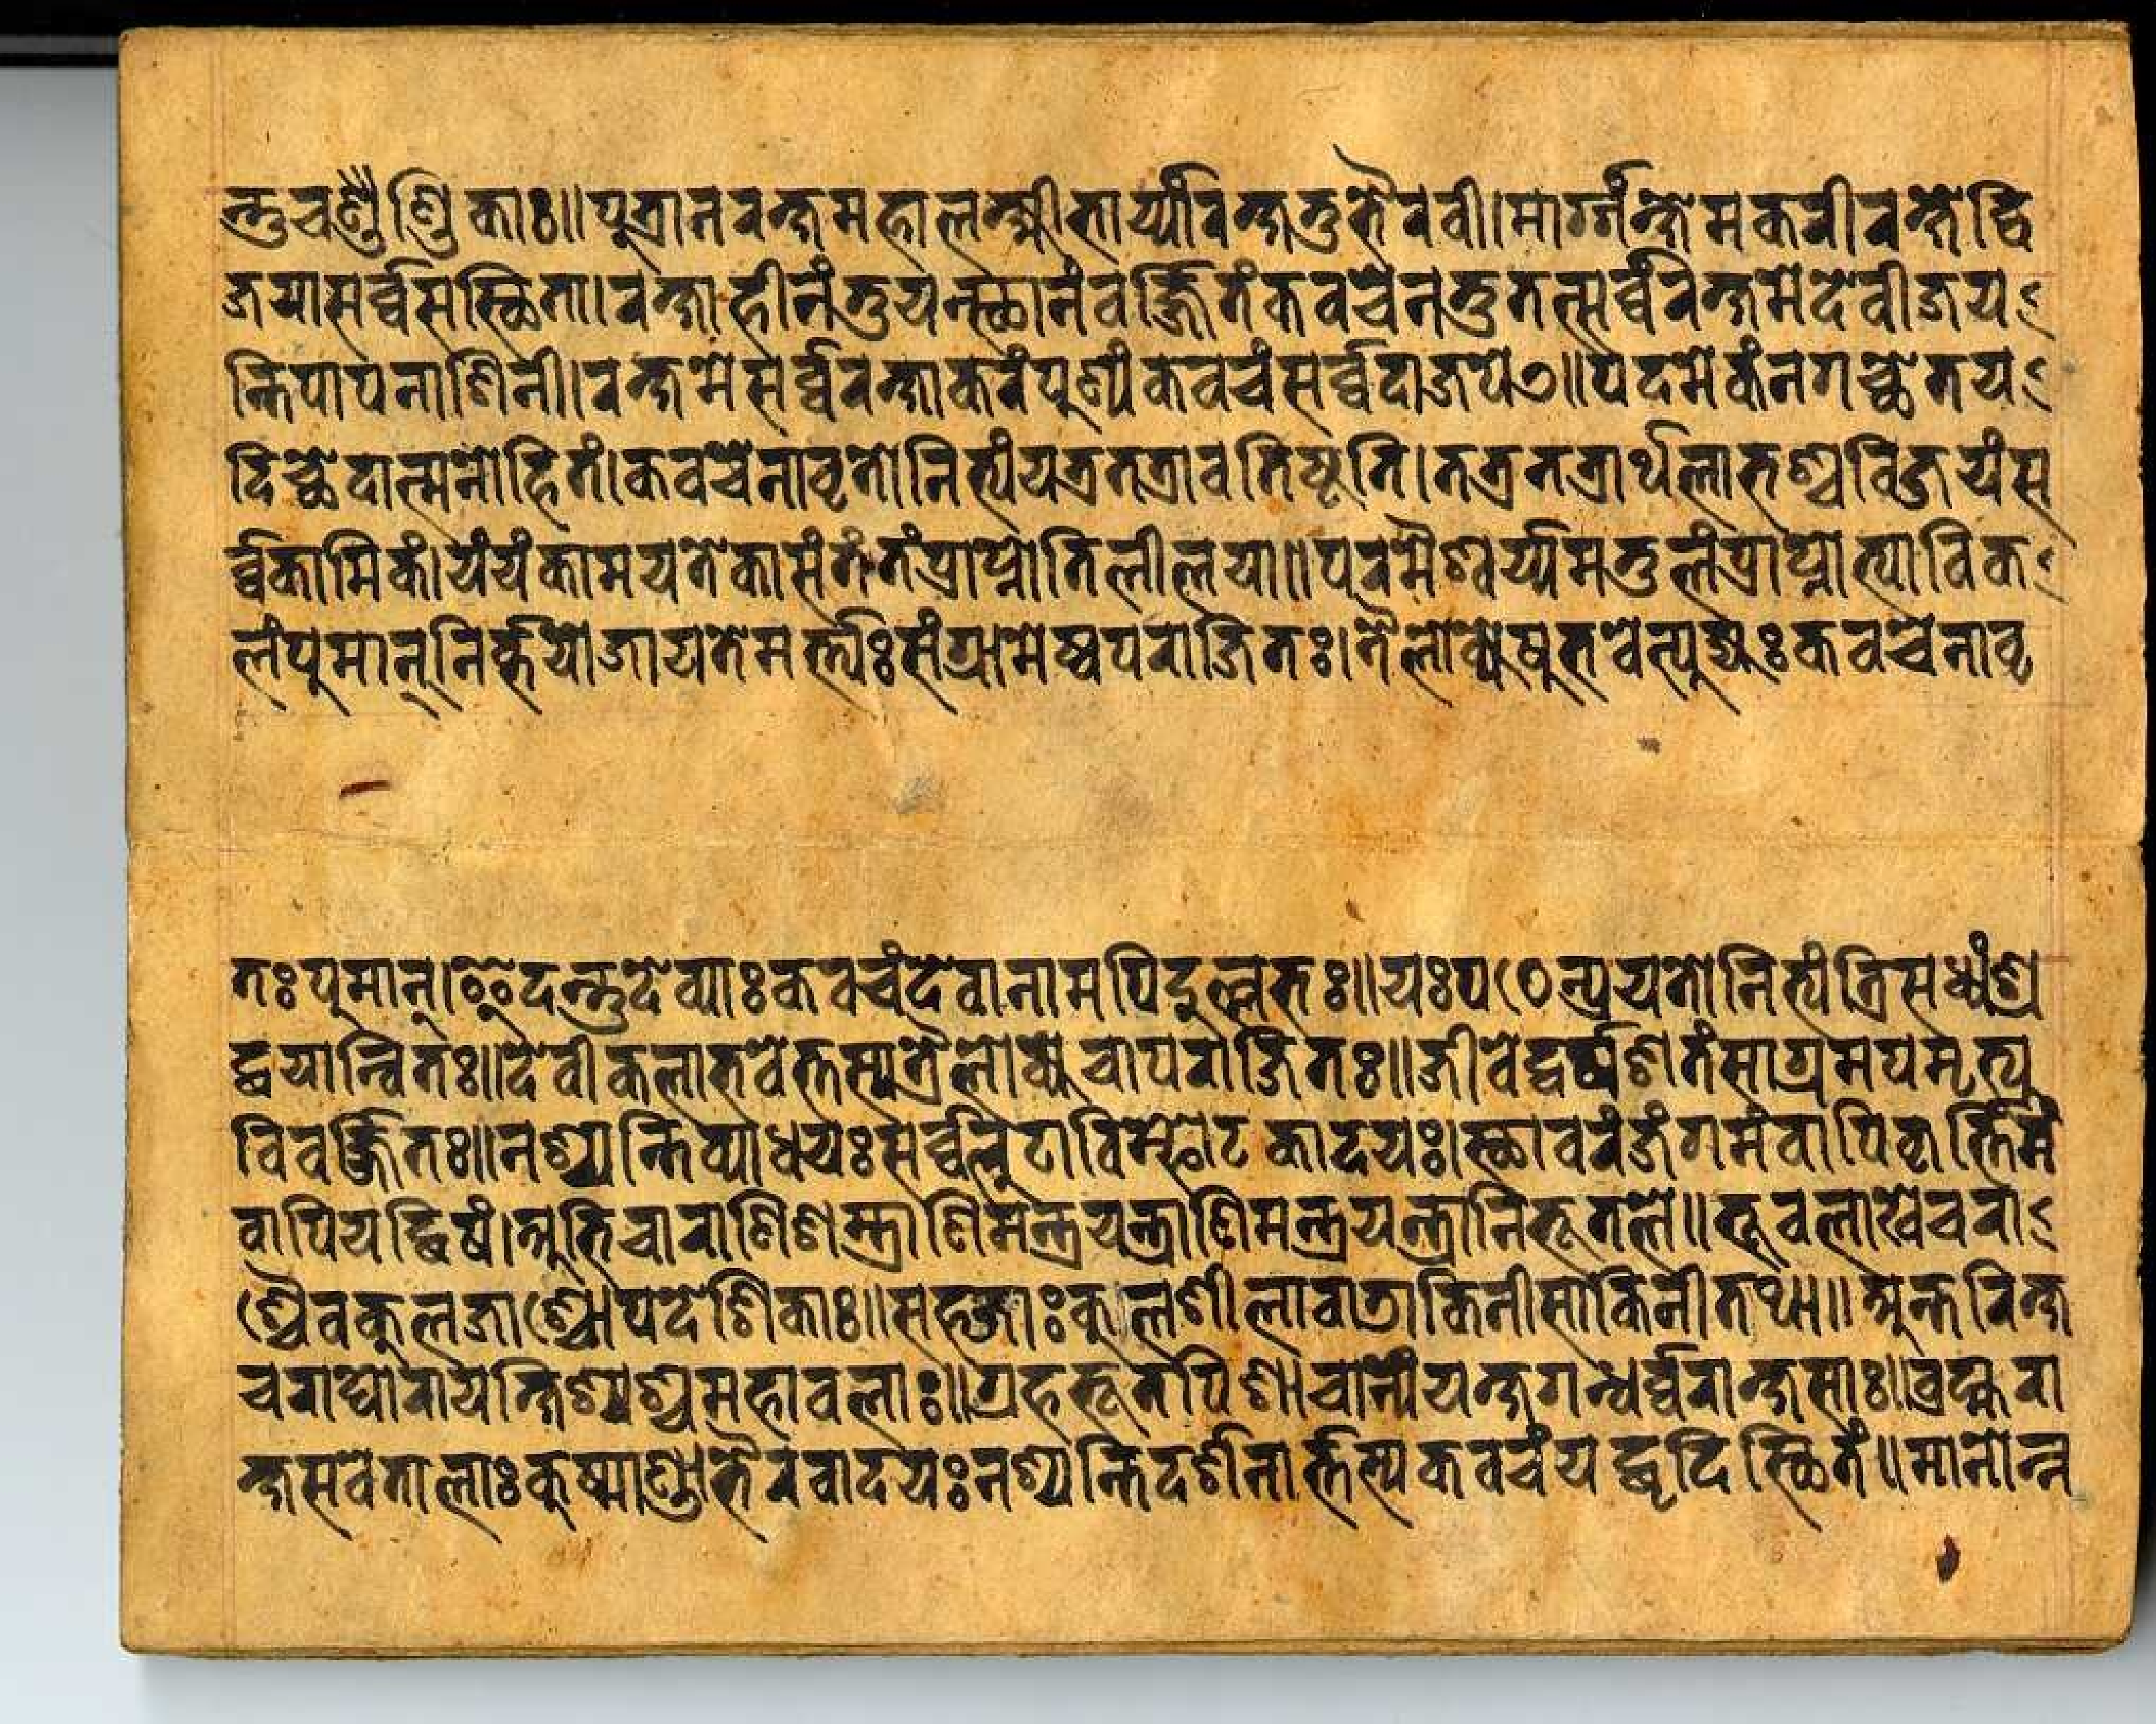 न्तुचण्डैण्डिकाः॥पुत्रानरक्षमहालक्ष्मीभार्य्यांरक्षतुभैरवी।मार्ग्गंक्षेमकरीरक्षेद्वि
जयासर्व्वसस्थिता।रक्षाहीनंतुयन्स्थानंवर्ज्जितंकवचेनतुतत्सर्व्वंरक्षमेदेवीजय
न्तिपापनाशिनी।रक्षमेसर्व्वरक्षाकरंपुण्यंकवचंसर्व्वदाजपेत्॥पदमेकंनगच्छेतय
दिच्छेदात्मनोहितं।कवचेनावृतोनित्यंयत्रतत्रावतिष्ठति।तत्रतत्रार्थलाभश्चविजयंस
र्व्वकामिकं।यंयंकामयतेकामंतंतंप्राप्नोतिलीलया॥परमैश्वर्य्यमतुलंप्राप्नोत्याविक
लंपुमान्निर्भयोजायतेमर्त्त्यःसंग्रामेष्वपराजितः।तैलोक्येषुभवेत्पुज्यःकवचेनावृ
तःपुमान्।इदन्तुदेव्याःकवचंदेवानामपिदुल्लभः॥यःपठेन्प्रयतोनित्यंत्रिसध्यंश्र
द्धयान्वितः॥देवीकलाभवेत्तस्यत्रैलोक्येचापराजितः॥जीवेद्वर्ष्षशतंसाग्रमपमृत्यु
विवर्ज्जितः॥नश्यन्तिव्याधयःसर्व्वेलुटाविस्फोटकादयः।स्थावरंजंगमंवापिकृर्त्तिमं
वापियद्विषं।अभिचाराणिशस्त्राणिमन्त्रयन्त्राणिमन्त्रयन्त्रानिभूतले॥भूचलाखेचरा
श्चैवकुलजाश्चोपदेशिकाः॥सहजाःकुलशीलावाडाकिनीसाकिनीतथा॥अन्तरिक्ष
चराघोरायक्षिश्यश्चमहावलाः॥ग्रहभूतपिशाचानांयक्षगन्धर्व्वराक्षसाः॥व्रह्मरा
क्षसवेतालाःकुष्माण्डाभैरवादयःनश्यन्तिदर्शनार्त्तस्यकवचंयद्धृदिस्थितं॥मानोन्न